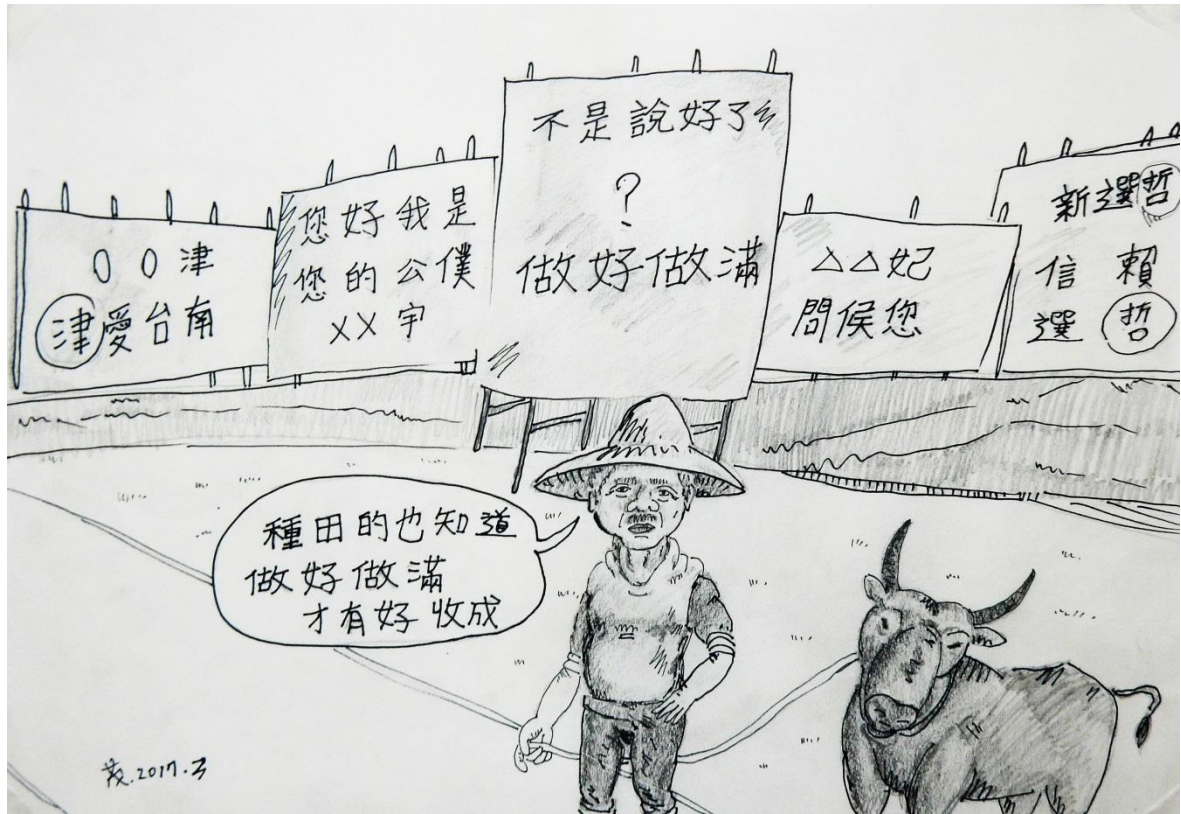 OO津
津愛台南
您好我是
您的公僕
XX宇
不是說好了
?
做好做滿
△△妃
問侯您
新選哲
信賴
選哲
種田的也知道
做好做滿
才有好收成
茂.2017.3